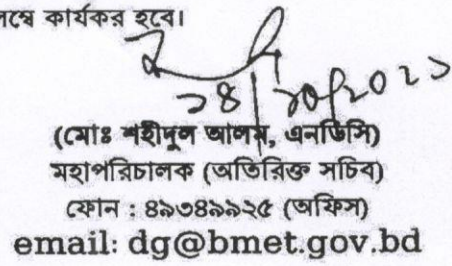 লম্বে কার্যকর হবে।
১৪/১০/২০২১
(মোঃ শহীদুল আলম, এনডিসি)
মহাপরিচালক (অতিরিক্ত সচিব)
ফোন : ৪৯৩৪৯৯২৫ (অফিস)
email: dg@bmet.gov.bd